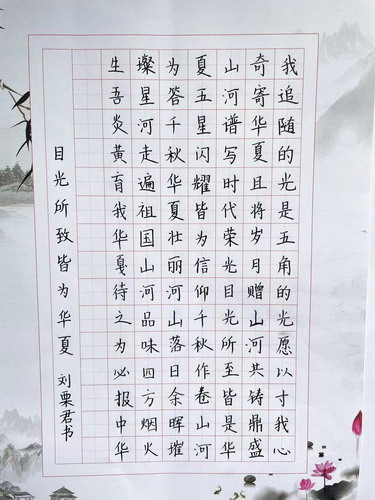 我追随的光是五角的光愿以寸我心
奇寄华夏且将岁月赠山河共铸鼎盛
山河谱写时代荣光目光所至皆是华
夏五星闪耀皆为信仰千秋作卷山河
为答千秋华夏壮丽河山落日余晖璀
璨星河走遍祖国山河品味四方烟火
生吾炎黄育我华戛待之为必报中华
目光所致皆为华夏 刘栗君书